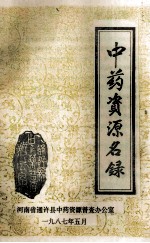 中药資源名录
河南省通许县中药资源普查办公室
一九八七年五月